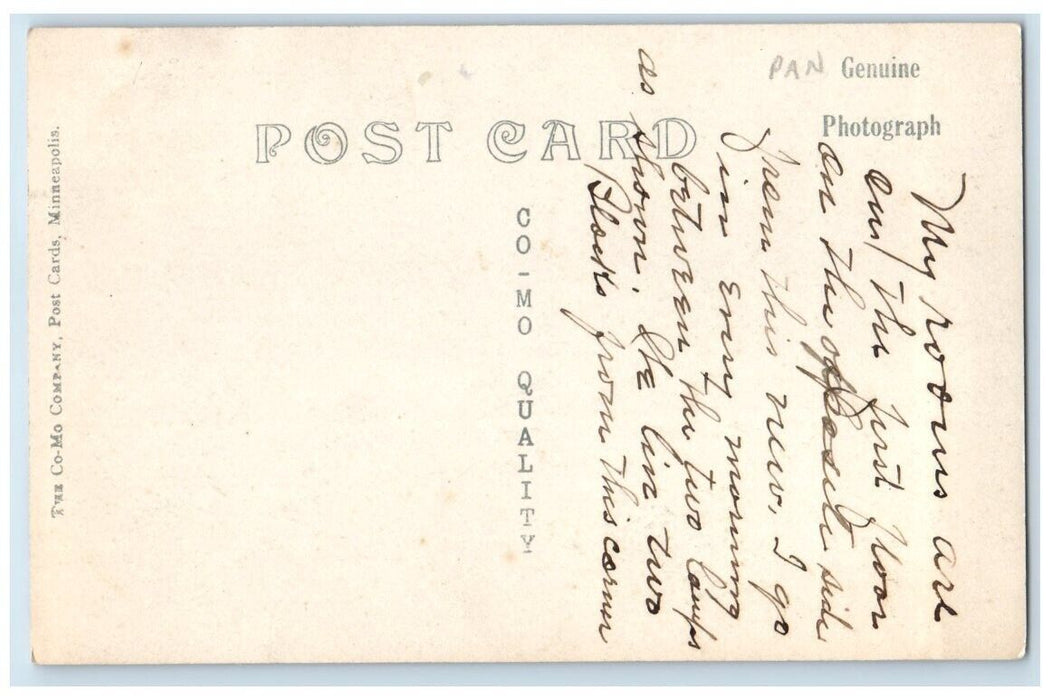 PAN Genuine
Photograph
POST CARD
CO-MO QUALITY
THE CO-MO COMPANY, Post Cards, Minneapolis.
My rooms are
on the first floor
on the opposite side
from this view, I go
in every morning
between the two lamps
as shown. We live two
Blocks from this corner